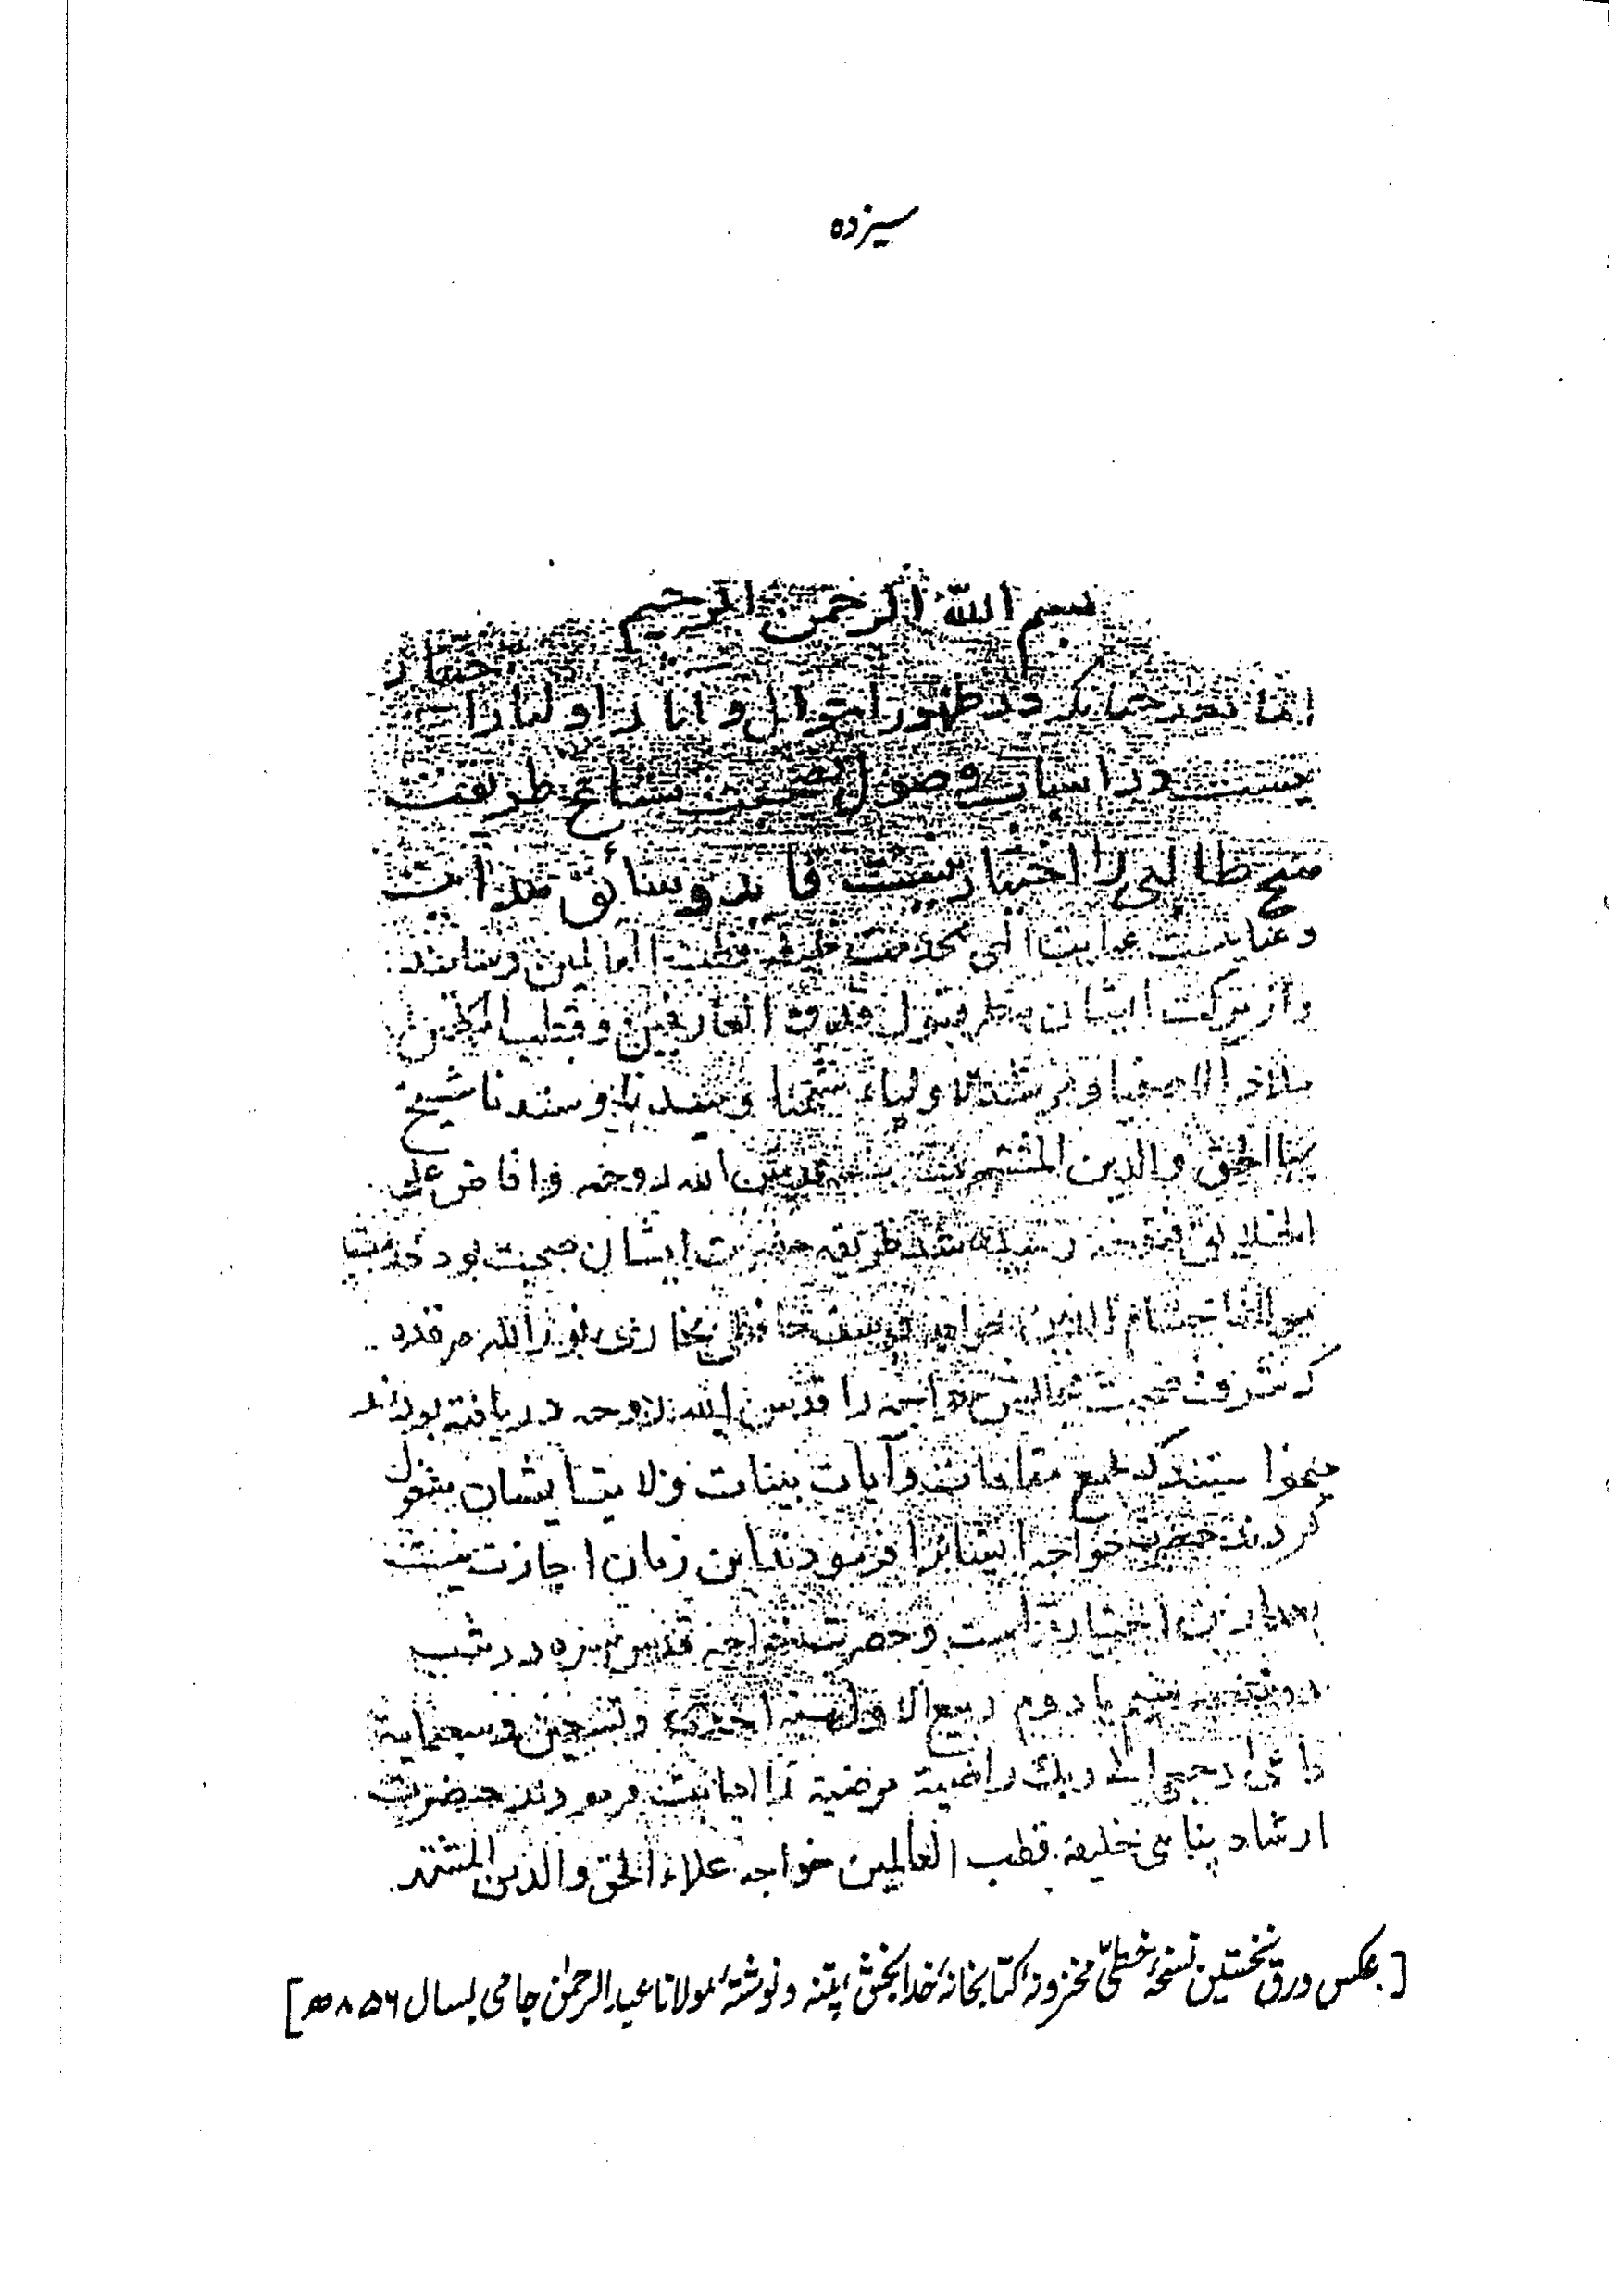 سیزده
بسم الله الرحمن الرحیم
اختیار
اما بعد چنانکه در ظهور احوال و آثار اولیا را
نیست در اسباب وصول بصحبت مشایخ طریقت
هیچ طالبی را اختیار نیست قاید و سائق هدایت
و عنایت الهی بخدمت قطب العالمین رساند
و از برکت ایشان بنظر قبول قدوة العارفین و قطب المحققین
ملاذ الاصفیا و مرشد الاولیاء شیخنا و سیدنا و سندنا شیخ
بهاء الحق والدین المشتهر بنقشبند قدس الله روحه و افاض علی
طریقه حضرت ایشان صحبت بود خدمت
مولانا حسام الدین خواجه یوسف حافظی بخاری نور الله مرقده
که شرف صحبت خواجه را قدس الله روحه دریافته بودند
میخواستند که بجمع مقامات و آیات بینات ولایت ایشان مشغول
کردند حضرت خواجه ایشانرا فرمودند این زمان اجازت نیست
بعد ازین اختیار تراست و حضرت خواجه قدس سره در شب
دوشنبه سیم یا دوم ربیع الاول سنه احدی و تسعین و سبعمایة
داعی ارجعی الی ربک راضیة مرضیة را اجابت فرمودند حضرت
ارشاد پناهی خلیفه قطب العالمین خواجه علاء الحق والدین المشتهر
[عکس ورق نخستین نسخهٔ خطّی مخزونهٔ کتابخانهٔ خدابخش، پتنه و نوشتهٔ مولانا عبدالرحمٰن جامی بسال ۸۵۶ھ]